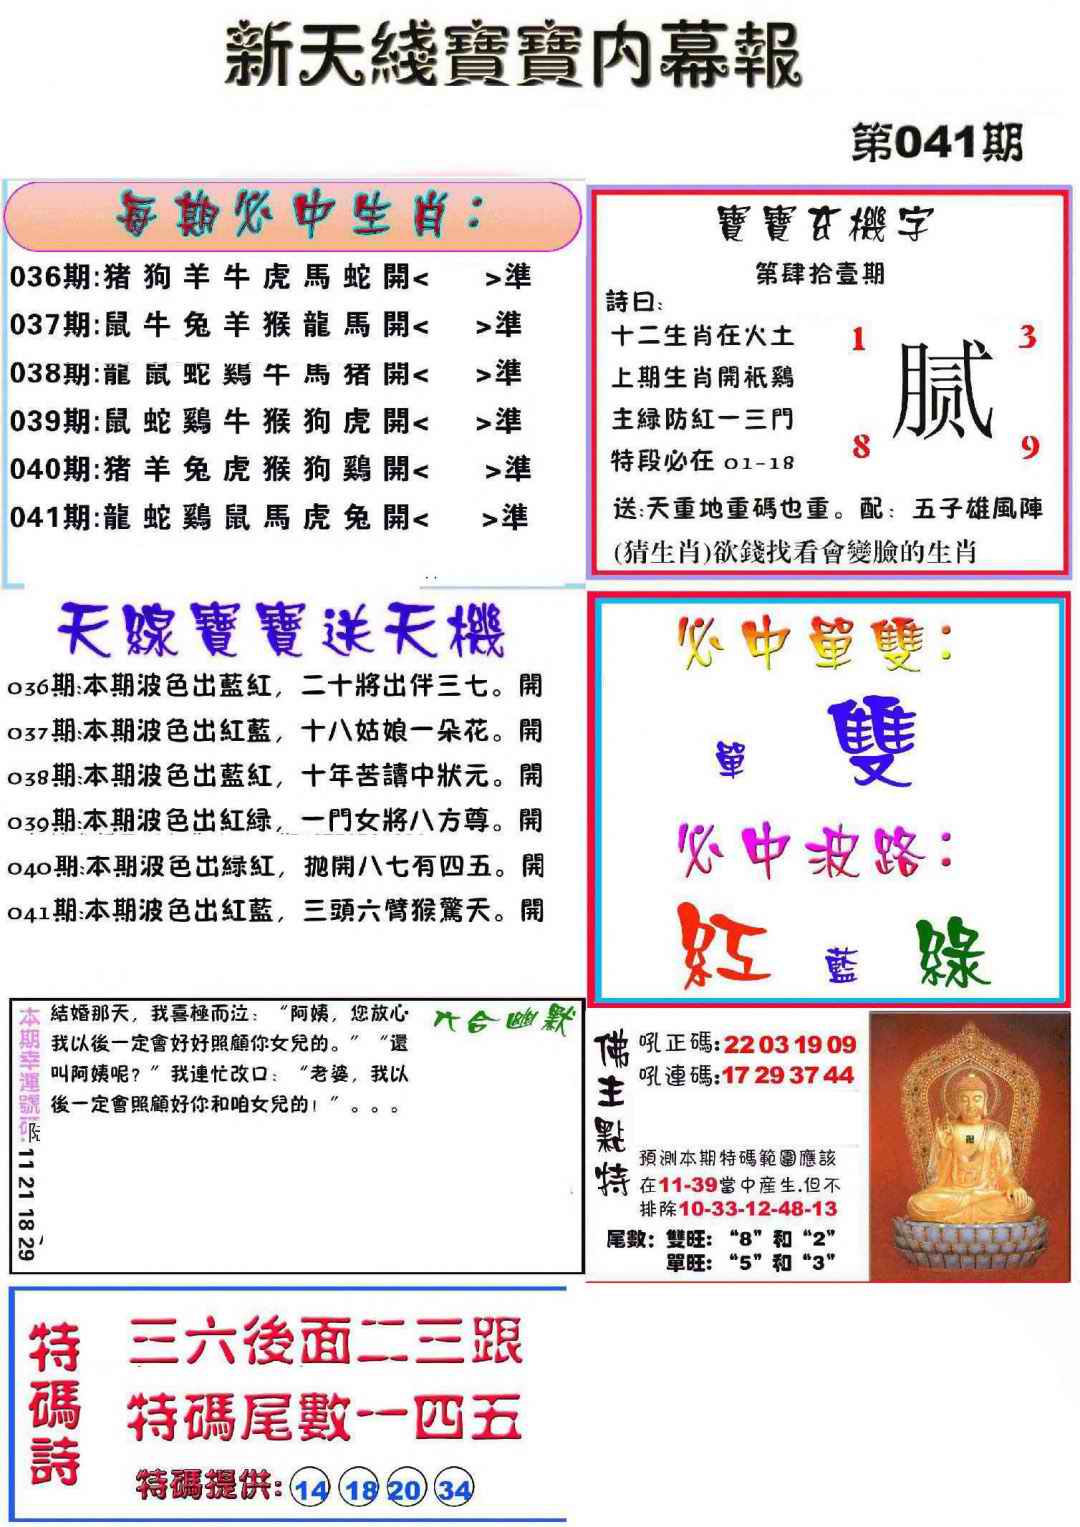 新天綫寶寶內幕報
第041期
每期必中生肖：
036期:猪狗羊牛虎馬蛇開< >準
037期:鼠牛兔羊猴龍馬開< >準
038期:龍鼠蛇鷄牛馬猪開< >準
039期:鼠蛇鷄牛猴狗虎開< >準
040期:猪羊兔虎猴狗鷄開< >準
041期:龍蛇鷄鼠馬虎兔開< >準
寶寶玄機字
第肆拾壹期
詩曰:
十二生肖在火土
上期生肖開祇鷄
主緑防紅一三門
特段必在 01-18
1 3
腻
8 9
送:天重地重碼也重。配：五子雄風陣
(猜生肖)欲錢找看會變臉的生肖
天線寶寶送天機
036期:本期波色出藍紅，二十將出伴三七。開
037期:本期波色出紅藍，十八姑娘一朵花。開
038期:本期波色出藍紅，十年苦讀中狀元。開
039期:本期波色出紅緑，一門女將八方尊。開
040期:本期波色出緑紅，拋開八七有四五。開
041期:本期波色出紅藍，三頭六臂猴驚天。開
必中單雙：
單 雙
必中波路：
紅 藍 綠
本期幸運號碼:
11 21 18 29
六合幽默
結婚那天，我喜極而泣：“阿姨，您放心
我以後一定會好好照顧你女兒的。”“還
叫阿姨呢？”我連忙改口：“老婆，我以
後一定會照顧好你和咱女兒的！”。。。
佛主點特
吼正碼:22 03 19 09
吼連碼:17 29 37 44
預測本期特碼範圍應該
在11-39當中産生.但不
排除10-33-12-48-13
尾數：雙旺：“8”和“2”
單旺：“5”和“3”
特碼詩
三六後面二三跟
特碼尾數一四五
特碼提供: 14 18 20 34